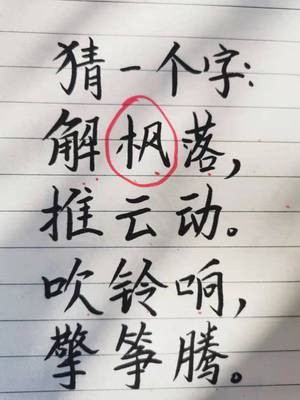 猜一个字：
解枫落，
推云动。
吹铃响，
擎筝腾。